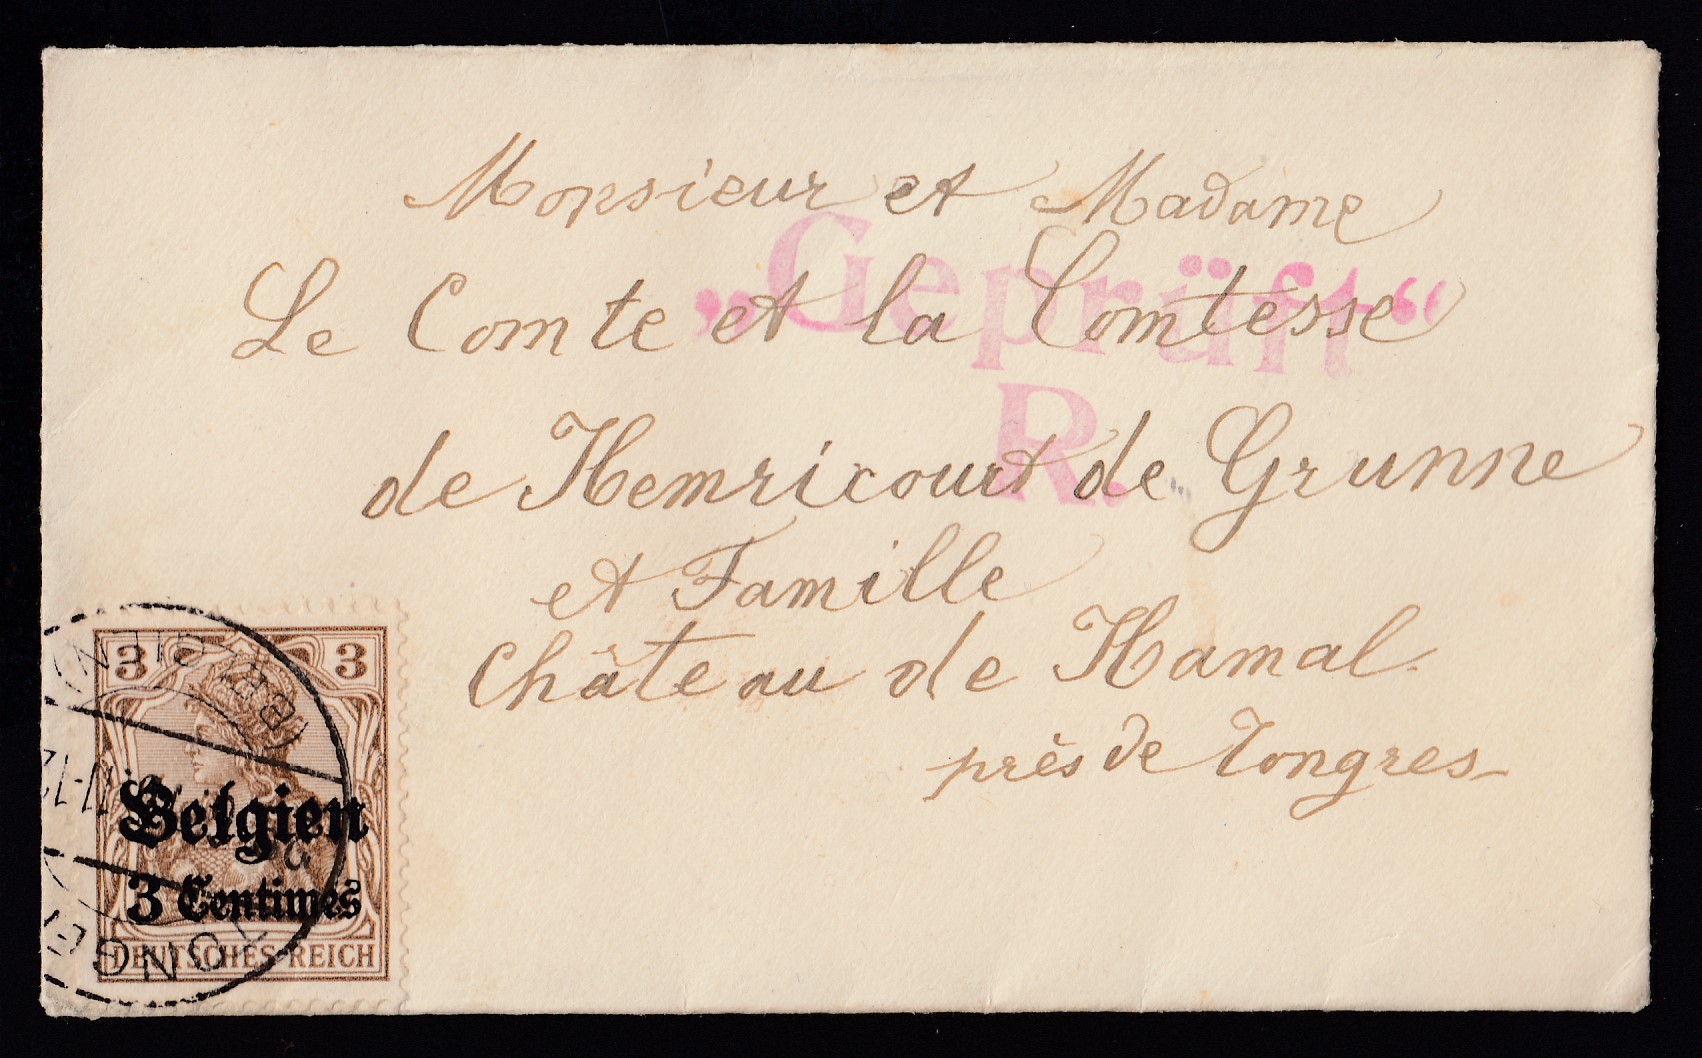 Monsieur et Madame
Le Comte et la Comtesse
de Hemricourt de Grunne
et Famille
Château de Hamal
près de Tongres
„Geprüft“
R.
3 3
Belgien
3 Centimes
DEUTSCHES REICH
BELGIEN